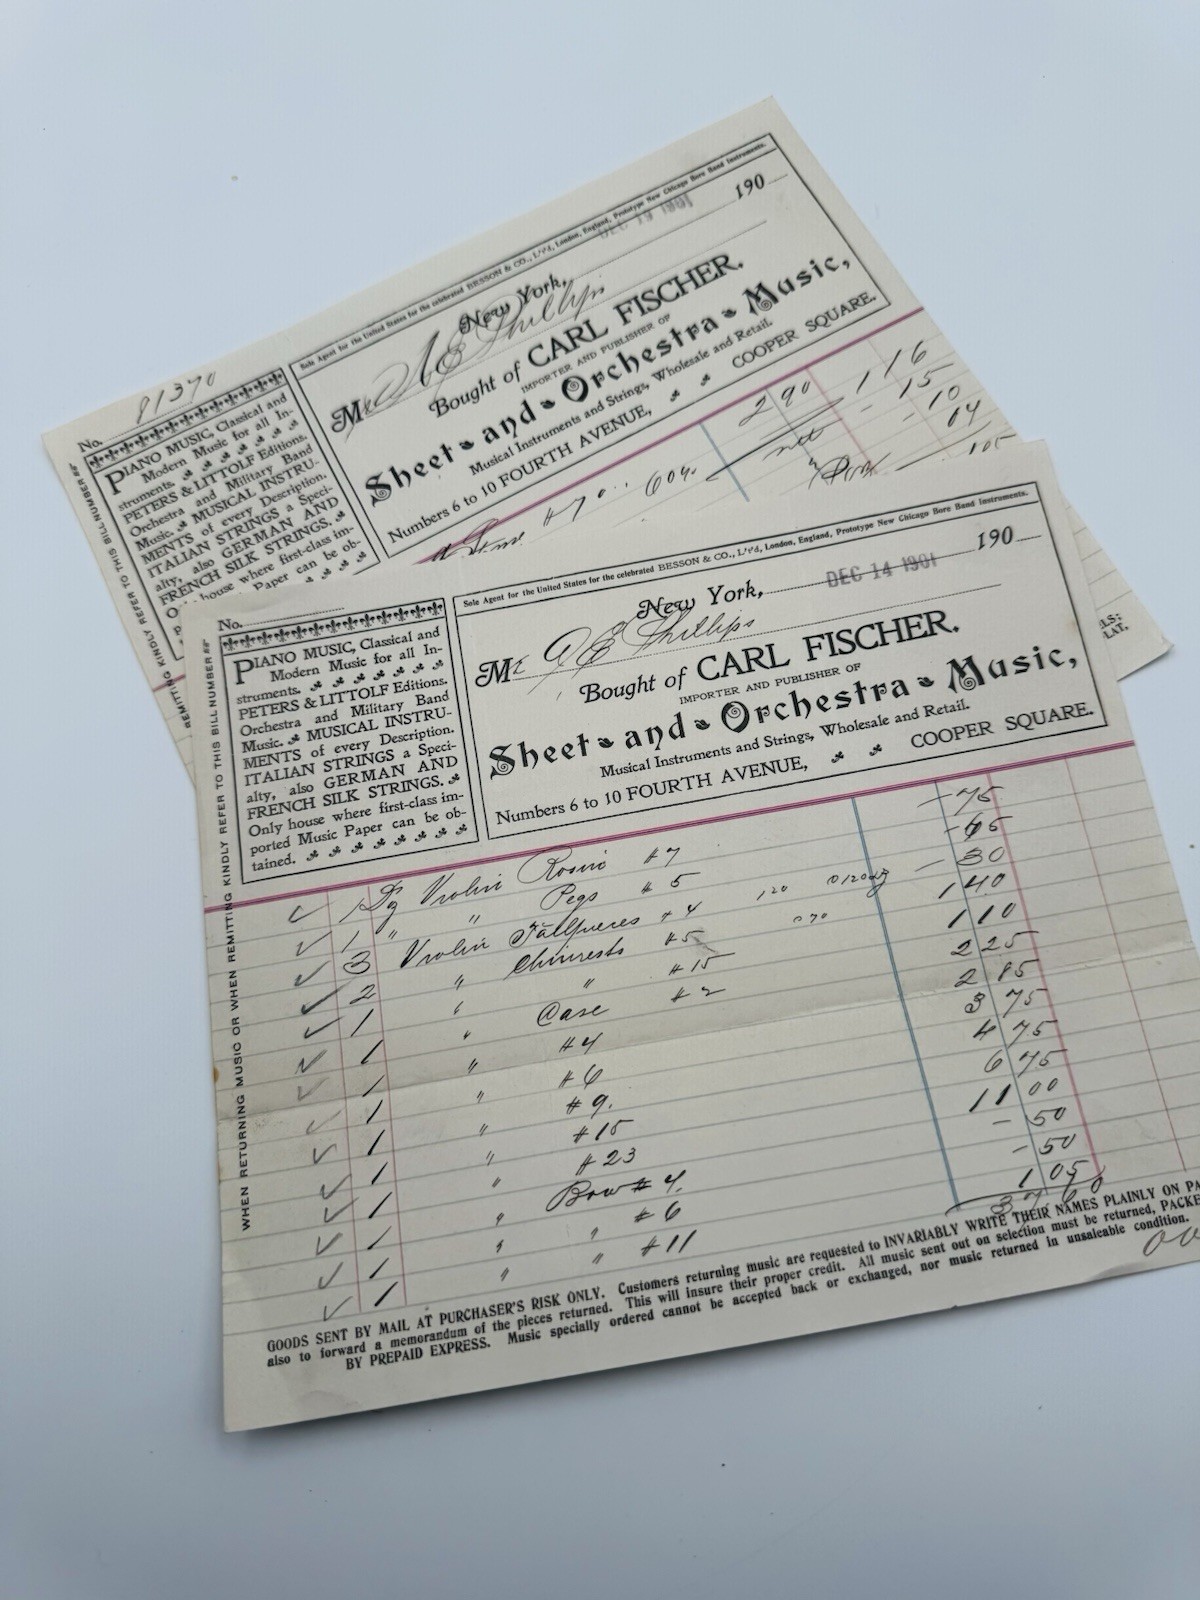 No. 81370
PIANO MUSIC, Classical and
Modern Music for all In-
struments.
PETERS & LITTOLF Editions.
Orchestra and Military Band
Music. MUSICAL INSTRU-
MENTS of every Description.
ITALIAN STRINGS a Speci-
alty, also GERMAN AND
FRENCH SILK STRINGS.
house where first-class im-
Paper can be ob-
REMITTING KINDLY REFER TO THIS BILL NUMBER
Sole Agent for the United States for the celebrated BESSON & CO., L't'd, London, England, Prototype New Chicago Bore Band Instruments.
New York, DEC 19 1901 190
Mr A E Phillips
Bought of CARL FISCHER.
IMPORTER AND PUBLISHER OF
Sheet and Orchestra Music,
Musical Instruments and Strings, Wholesale and Retail.
Numbers 6 to 10 FOURTH AVENUE, COOPER SQUARE.
#7 60% 2 90 1 16
net - 15
10
04
105
No.
PIANO MUSIC, Classical and
Modern Music for all In-
struments.
PETERS & LITTOLF Editions.
Orchestra and Military Band
Music. MUSICAL INSTRU-
MENTS of every Description.
ITALIAN STRINGS a Speci-
alty, also GERMAN AND
FRENCH SILK STRINGS.
Only house where first-class im-
ported Music Paper can be ob-
tained.
WHEN RETURNING MUSIC OR WHEN REMITTING KINDLY REFER TO THIS BILL NUMBER
Sole Agent for the United States for the celebrated BESSON & CO., L't'd, London, England, Prototype New Chicago Bore Band Instruments.
New York, DEC 14 1901 190
Mr A E Phillips
Bought of CARL FISCHER.
IMPORTER AND PUBLISHER OF
Sheet and Orchestra Music,
Musical Instruments and Strings, Wholesale and Retail.
Numbers 6 to 10 FOURTH AVENUE, COOPER SQUARE.
1 Dz Violin Rosin #7 - 75
1 " " Pegs #5 - 65
3 Violin Tailpieces #4 - 30
2 " Chinrests #5 1 40
1 " " #15 1 10
1 " Case #2 2 25
1 " #4 2 85
1 " #6 3 75
1 " #9. 4 75
1 " #15 6 75
1 " #23 11 00
1 " Bow #4. - 50
1 " " #6 - 50
1 " " #11 1 05
37 60
GOODS SENT BY MAIL AT PURCHASER'S RISK ONLY. Customers returning music are requested to INVARIABLY WRITE THEIR NAMES PLAINLY ON PA
also to forward a memorandum of the pieces returned. This will insure their proper credit. All music sent out on selection must be returned, PACKE
BY PREPAID EXPRESS. Music specially ordered cannot be accepted back or exchanged, nor music returned in unsaleable condition.